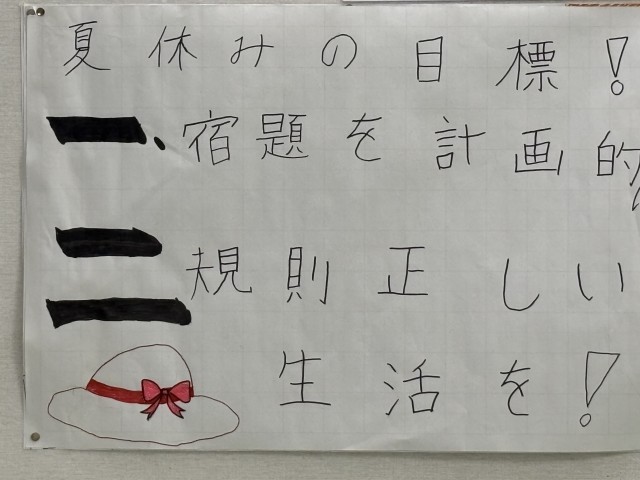 夏休みの目標！
一、宿題を計画的
二 規則正しい
生活を！